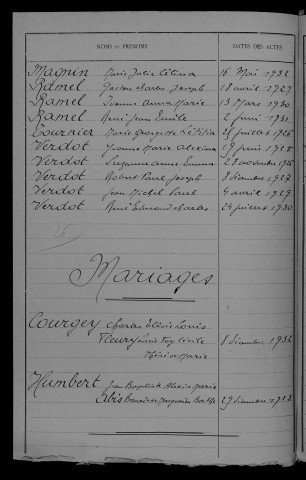 NOMS ET PRÉNOMS DATES DES ACTES
Magnin Marie Julie Célina 16 Mai 1932
Ramel Gaston Charles Joseph 18 avril 1929
Ramel Yvonne Anna Marie 13 Mars 1930
Ramel René Jean Emile 2 juin 1931
Tournier Marie Georgette Laëtitia juillet 1926
Verdot Yvonne Marie 19 juin 1925
Verdot Suzanne Anna Emma novembre 1926
Verdot Robert Paul Joseph 8 décembre 1927
Verdot Jean Michel Paul avril 1929
Verdot René Edmond Charles 24 juillet 1930
Mariages
Courgey Charles Elisée Louis
Fleury Cécile 8 décembre 1932
Marie
Humbert Jean Baptiste Alexis Marie
Abis Marguerite Berthe 29 décembre